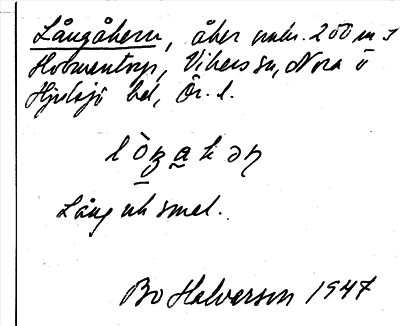 Långåkern, åker omkr. 200 m S
Holmentorp, Vikers sn, Nora o
Hjulsjö bd, Ör. l.
lòŋakəɳ
Lång och smal.
Bo Halverson 1947